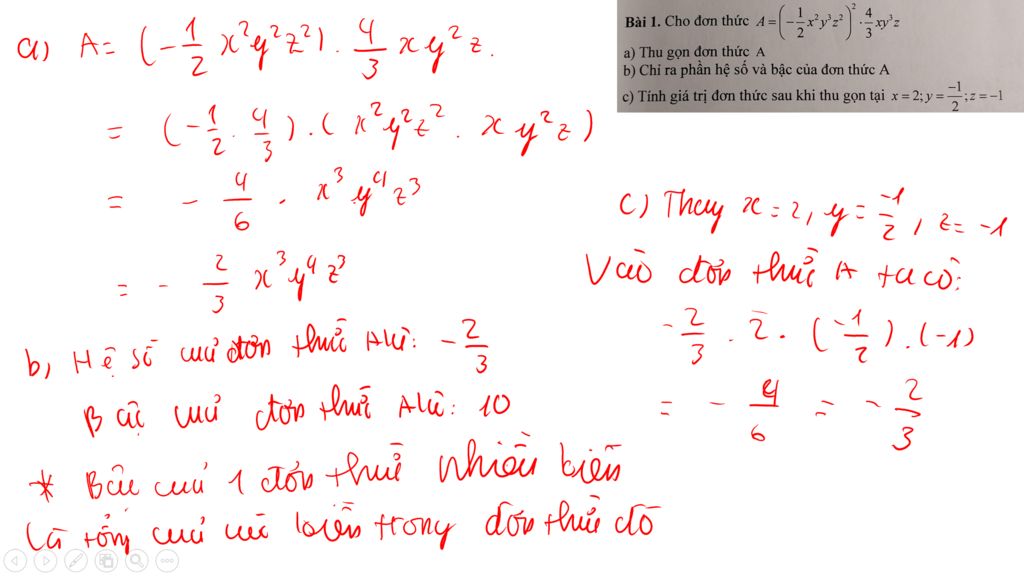 Bài 1. Cho đơn thức A = (-1/2 x²y³z²)² · 4/3 xy³z
a) Thu gọn đơn thức A
b) Chỉ ra phần hệ số và bậc của đơn thức A
c) Tính giá trị đơn thức sau khi thu gọn tại x = 2; y = -1/2; z = -1
a) A = (-1/2 x²y²z²) · 4/3 x y² z.
= (-1/2 · 4/3) · (x²y²z² · x y² z)
= - 4/6 · x³ y⁴ z³
= - 2/3 x³ y⁴ z³
b) Hệ số của đơn thức A là: - 2/3
Bậc của đơn thức A là: 10
* Bậc của 1 đơn thức nhiều biến
là tổng của các biến trong đơn thức đó
c) Thay x = 2, y = -1/2, z = -1
Vào đơn thức A ta có:
- 2/3 · 2 · (-1/2) · (-1)
= - 4/6 = - 2/3